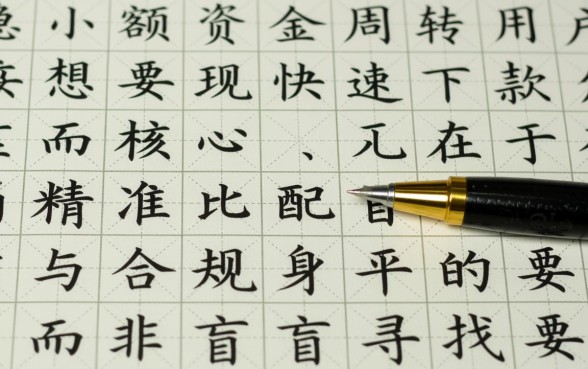 小额资金周转用
想要现快速下款
而核心、兀在于
精准比配
与合规身平的要
而非盲盲寻找要